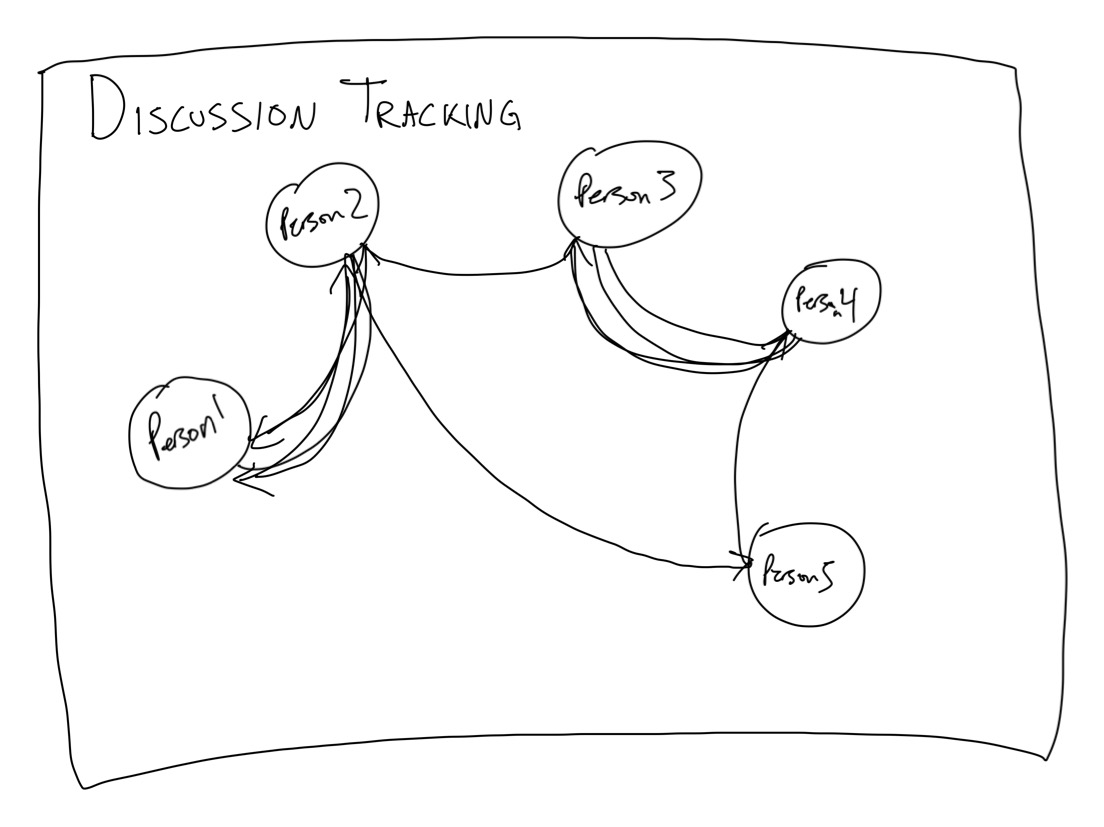 DISCUSSION TRACKING
Person 2
Person 3
Person 4
Person 1
Person 5